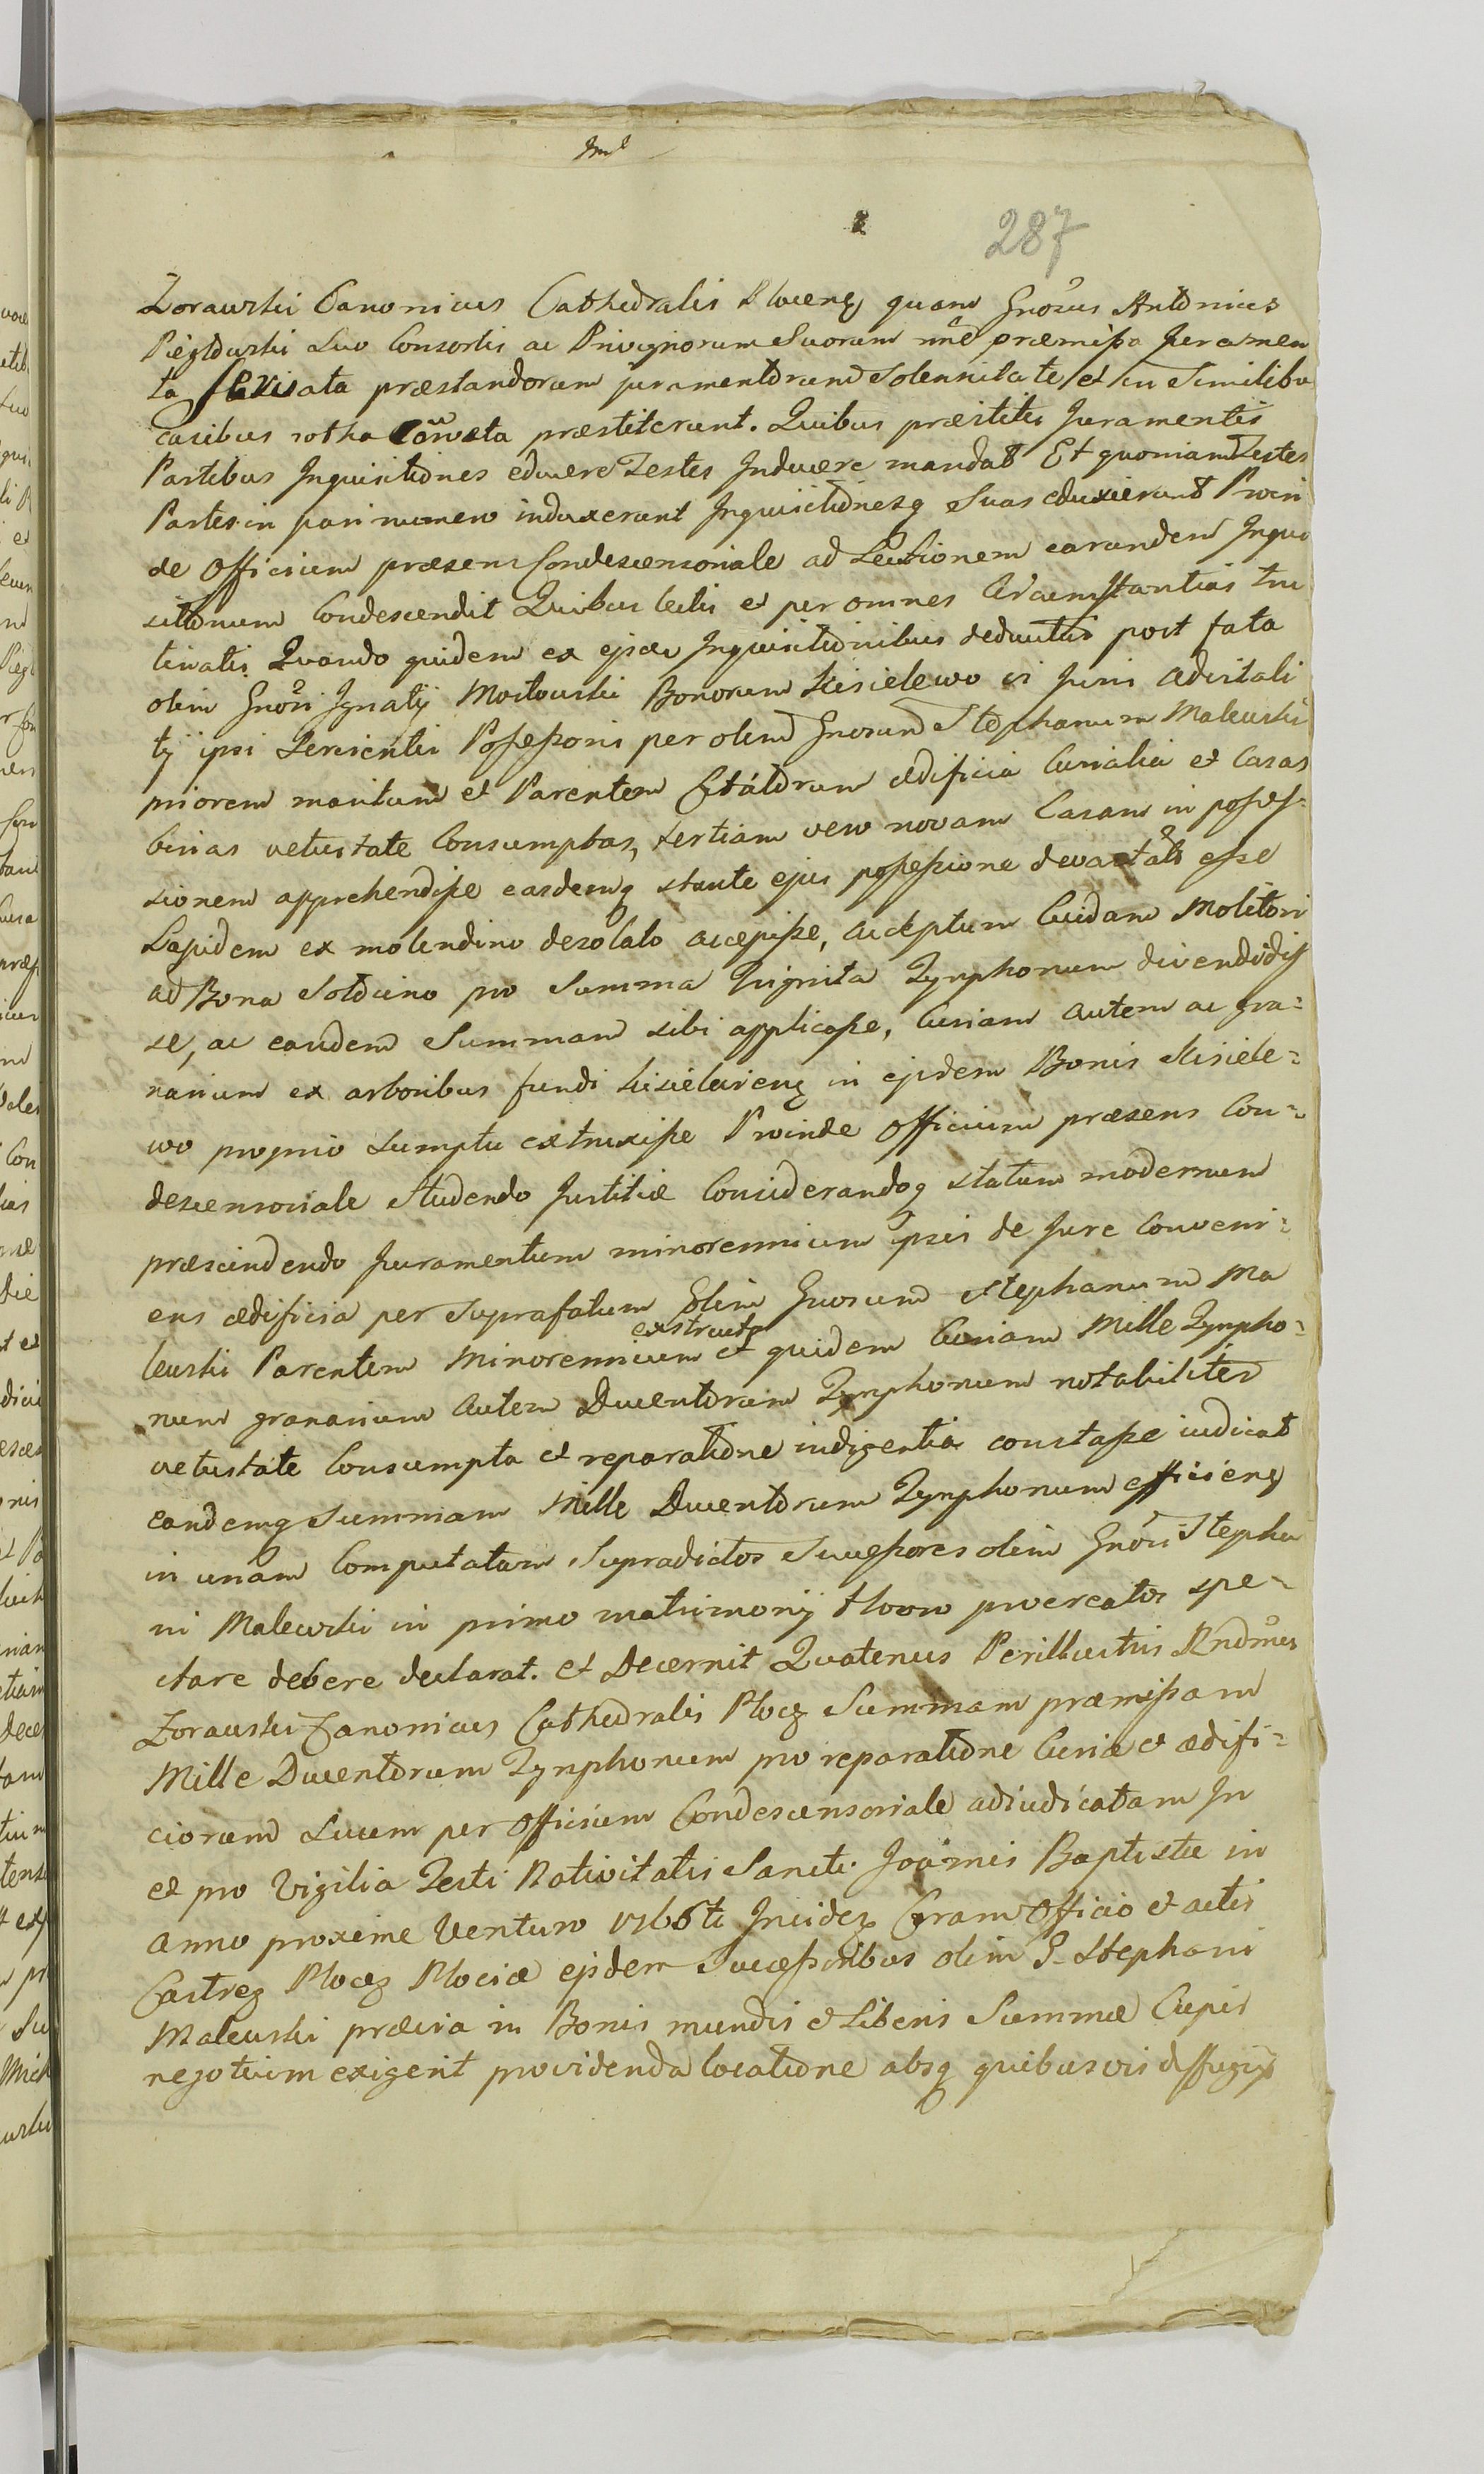 287
Zorawski Canonicus Cathedralis Plocens quam Gnosus Antonius
Piegłowski suo Consortis ac Privignorum Suorum nne præmissa Juramen
ta præstandorum juramentorum Solennitate et in Similibus
casibus rotha Consveta præstiterunt. Quibus præstitis Juramentis
Partibus Inquisitiones educere Testes Inducere mandat Et quoniam Testes
Partes in pari numero induxerunt Inquisitionesq Suas eduxierunt Proin
de Officium præsens Condescensoriale ad Lectionem earundem Inqui
sitionum Condescendit Quibus lectis et per omnes Circumstantias tru
tinatis Quando quidem ex ejsdem Inquisitionibus deductis post fata
olim Gnosi Ignatij Mostowski Bonorum Kisielewo vi Juris advitali
tij ipsi servientis Possessoris per olim Gnosum Stephanum Malewski
priorem maritum et Parentem Citatorum ædificia Curialia et Casas
binas vetustate Consumptas, tertiam vero novam Casam in posses-
sionem apprehendisse easdemq stante ejus possessione devastatas esse
Lapidem ex molendino desolato accepisse, acceptum Cuidam Molitori
ad Bona Solduino pro Summa Triginta Tynphonum divendidis
se, ac eandem Summam sibi applicasse, Curiam autem ac gra-
narium ex arboribus fundi Kisieleviens in ejsdem Bonis Kisiele-
wo proprio sumptu extruxisse Proinde Officium præsens Con-
descensoriale Studendo Justitiæ Considerandoq statum modernum
præscindendo Juramentum minorennium ipsis de Jure Conveni-
ens ædificia per Suprafatum Olim Gnosum Stephanum Ma
lewski Parentem Minorennium extructa et quidem Curiam Mille Tynpho-
num granarium autem Ducentorum Tynphonum notabiliter
vetustate Consumpta et reparatione indigentia constasse iudicat
eandemq Summam Mille Ducentorum Tynphonum efficiens
in unam Computatam Supradictos Successores olim Gnosi Stepha
ni Malewski in primo matrimonij thoro procreatos spe-
ctare debere declarat. et Decernit Quatenus Perillustris Rndmus
Zorawski Canonicus Cathedralis Plocs Summam præmissam
Mille Ducentorum Tynphonum pro reparatione Curiæ et ædifi-
ciorum Suum per Officium Condescensoriale adiudicatam In
et pro Vigilia Festi Nativitatis Sancti Joannis Baptistæ in
anno proxime Venturo 1766ti Incidens Coram Officio et actis
Castrens Plocens Plociæ ejsdem Successoribus olim G Stephani
Malewski prævia in Bonis mundis et Liberis Summæ Cujus
negotium exigerit providenda locatione absq quibusvis diffugijs